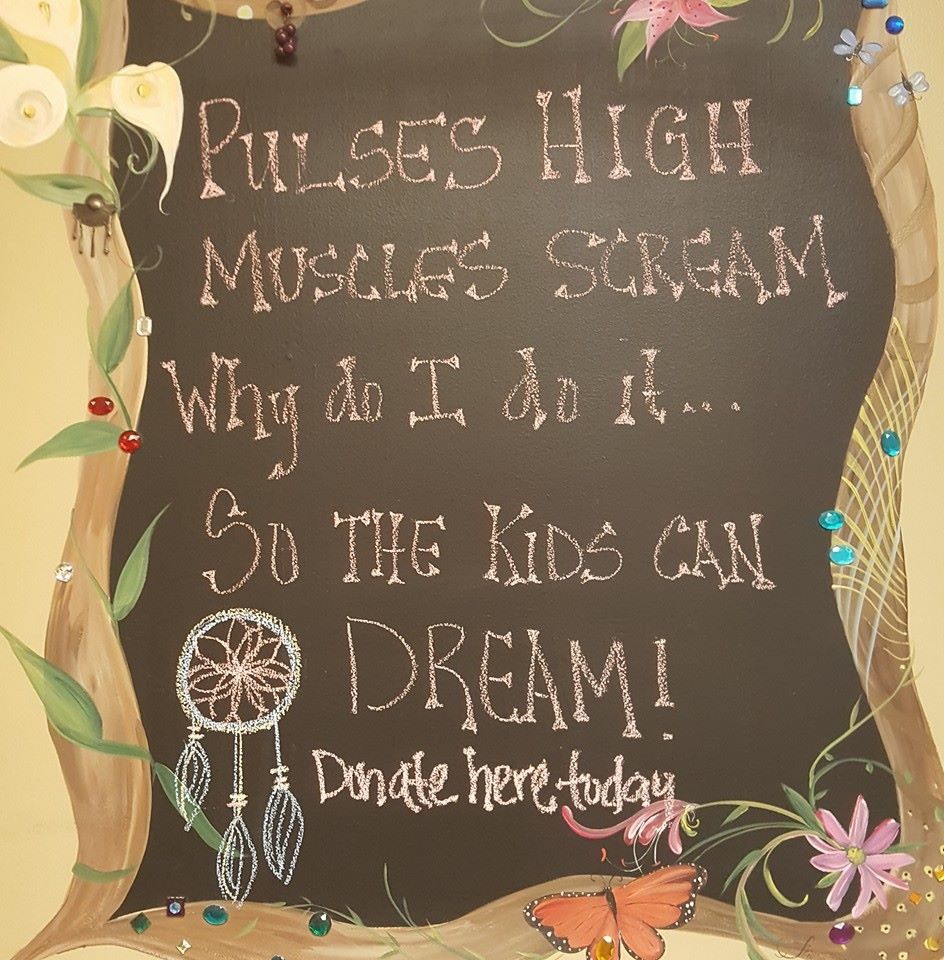 PULSES HIGH
MUSCLES SCREAM
Why do I do it...
SO THE KIDS CAN
DREAM!
Donate here today